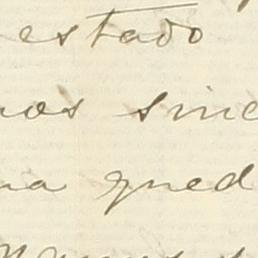 estado
nos sinc
na qued